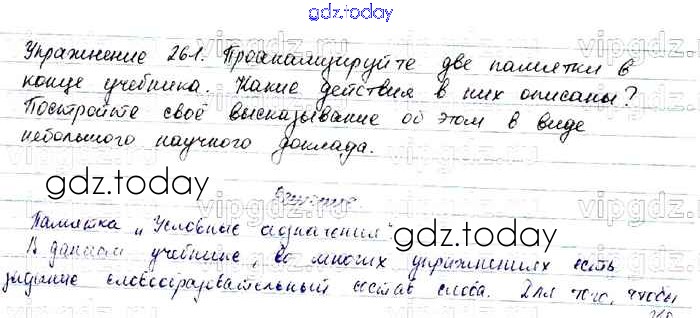 gdz.today
Упражнение 261. Проанализируйте две памятки в
конце учебника. Какие действия в них описаны?
Постройте своё высказывание об этом в виде
небольшого научного доклада.
gdz.today
Решение
Памятка „Условные обозначения".
gdz.today
В данном учебнике, во многих упражнениях есть
задание словообразовательный состав слова. Для того, чтобы